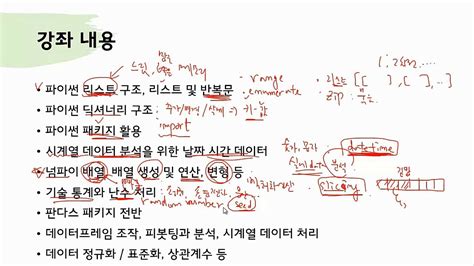 강좌 내용
• 파이썬 리스트 구조, 리스트 및 반복문
range
enumerate
• 리스트 [[ ], [ ], ...]
zip : 묶음
• 파이썬 딕셔너리 구조 : 추가/변경/삭제 ⇒ 키-값
• 파이썬 패키지 활용
import
• 시계열 데이터 분석을 위한 날짜 시간 데이터
숫자, 문자
datetime
• 넘파이 배열 배열 생성 및 연산, 변형 등
분석
slicing
• 기술 통계와 난수 처리 :
random number
seed
• 판다스 패키지 전반
• 데이터프레임 조작, 피봇팅과 분석, 시계열 데이터 처리
• 데이터 정규화 / 표준화, 상관계수 등